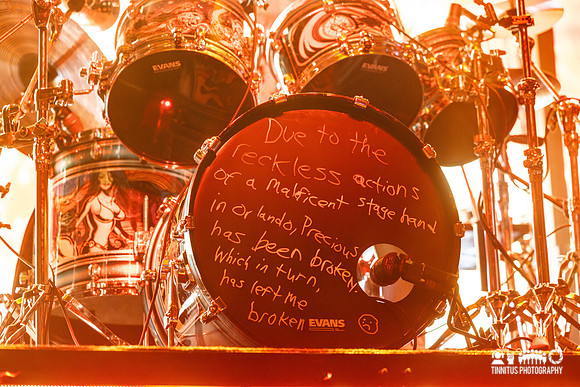 EVANS
EVANS
Due to the
reckless actions
of a maleficent stage hand
in Orlando, Precious
has been broken.
Which in turn,
has left me
broken EVANS
TINNITUS PHOTOGRAPHY